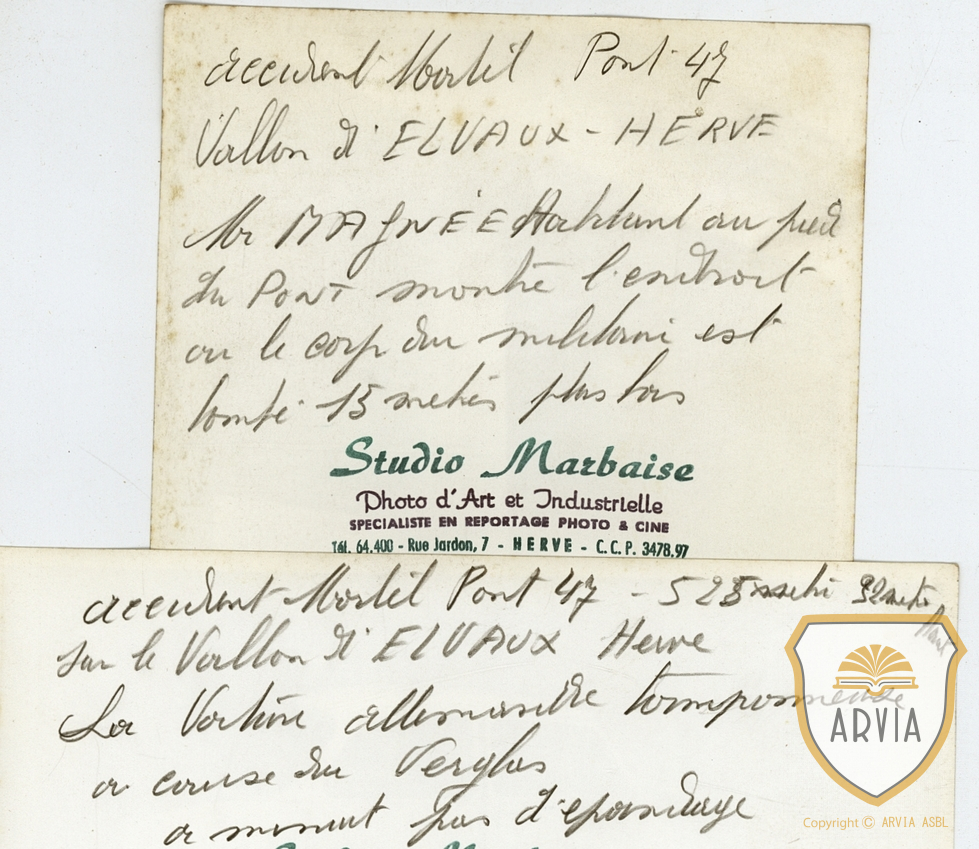 accident Mortel Pont 47
Vallon d'ELVAUX - HERVE
Mr MAGNÉE Habitant au pied
du PONT montre l'endroit
ou le corp du militaire est
tombé 15 metres plus bas
Studio Marbaise
Photo d'Art et Industrielle
SPECIALISTE EN REPORTAGE PHOTO & CINE
Tél. 64.400 - Rue Jardon, 7 - HERVE - C.C.P. 3478.97
accident Mortel Pont 47 - 525 metre 32 metre
haut
sur le Vallon d'ELVAUX Herve
La Voiture allemande tamponneuse
a cause du Verglas
a minuit pas d'epandage
ARVIA
Copyright © ARVIA ASBL